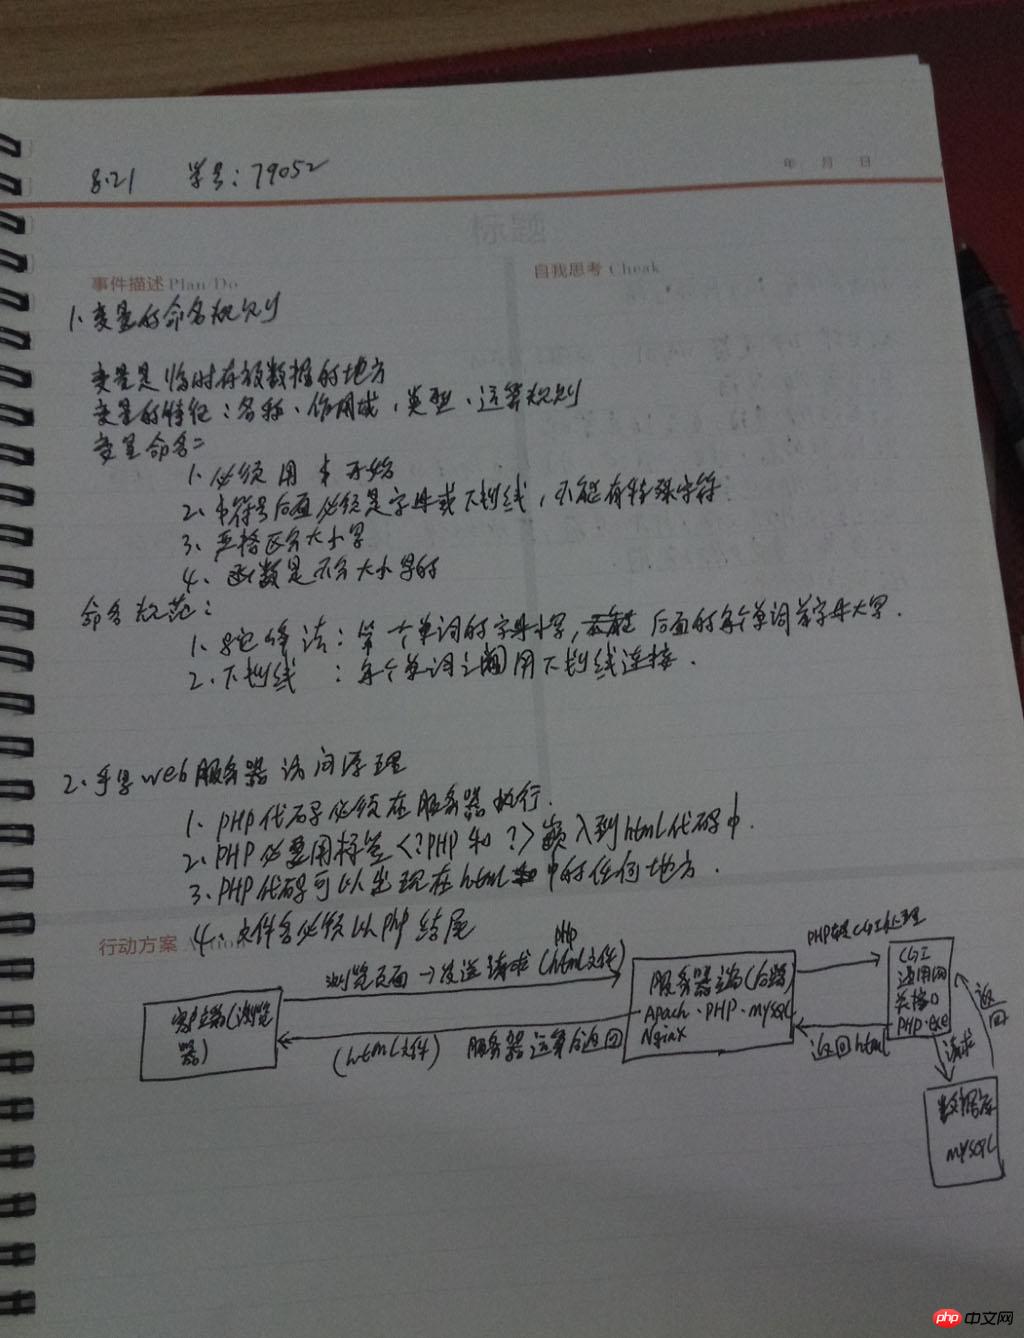 8.21 学号：79052
年 月 日
标题
事件描述 Plan/Do
自我思考 Cheak
1、变量的命名规则
变量是临时存放数据的地方
变量的特征：名称、作用域、类型、运算规则
变量命名：
1、必须用 $ 开始
2、$符号后面必须是字母或下划线，不能有特殊字符
3、严格区分大小写
4、函数是不分大小写的
命名规范：
1、驼峰法：第一个单词的字母小写，后面的每个单词首字母大写.
2、下划线：每个单词之间用下划线连接.
2、手写web服务器访问原理
1、PHP代码必须在服务器执行.
2、PHP必要用标签<?PHP 和 ?>嵌入到html代码中.
3、PHP代码可以出现在html中的任何地方.
4、文件名必须以php结尾
行动方案
浏览页面→发送请求(html文件)
php
PHP CGI处理
客户端(浏览器)
服务器端(后端)
Apach·PHP·mysql
Nginx
CGI
通用网关接口
PHP.exe
返回
(html文件) 服务器运算后返回
返回html
请求
数据库
mysql
php 中文网